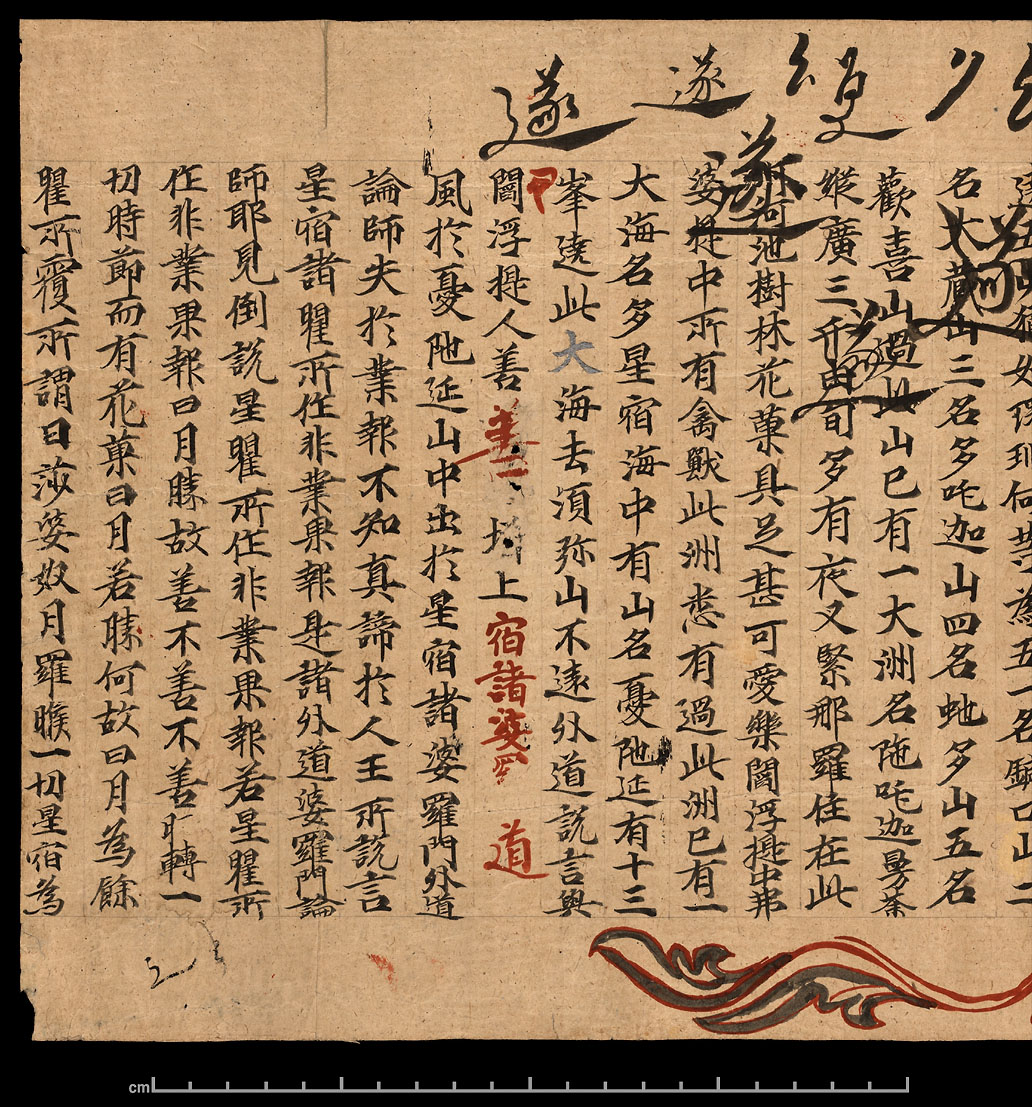 名大廣山三名多吒迦山四名虵多山五名
歡喜山過此山已有一大洲名陁吒迦曼荼
縱廣三千由旬多有夜叉緊那羅住在此
河池樹林花菓具足甚可愛樂閻浮提中弗
婆提中所有禽獸此洲悉有過此洲已有一
大海名多星宿海中有山名憂陁延有十三
峯遶此大海去湏弥山不遠外道説言與
閻浮提人善 上宿諸婆羅 道
風於憂陁延山中出於星宿諸婆羅門外道
論師失於業報不知真諦於人王所説言
星宿諸曜所作非業果報是諸外道婆羅門論
師耶見倒説星曜所作非業果報若星曜所
作非業果報日月勝故善不善不善時轉一
切時節而有花菓日月若勝何故日月為餘
曜所覆所謂日莎婆奴月羅睺一切星宿為
遂遂